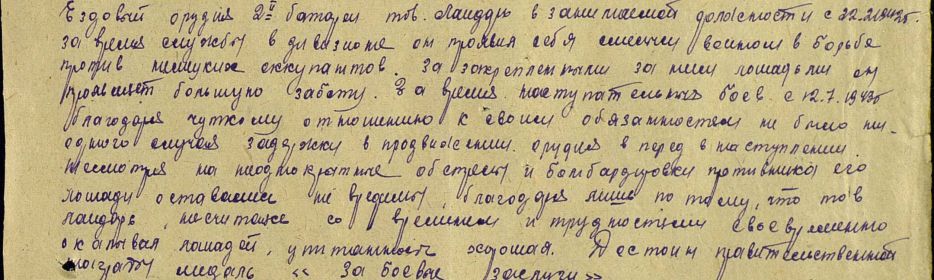 Ездовый орудия 2й батареи тов. Ландарь в занимаемой должности с 22.2.1942г.
за время службы в дивизионе он проявил себя смелым воином в борьбе
против немецких оккупантов. За закрепленными за ним лошадьми он
проявляет большую заботу. За время наступательных боев с 12.7.1943г
благодаря чуткому отношению к своим обязанностям не было ни-
одного случая задержки в продвижении орудия в перед в наступлении.
Несмотря на неоднократные обстрелы и бомбардировки противника его
лошади оставались не вредимы, благодаря лишь потому, что тов
Ландарь не считаясь со временем и трудностями своевременно
окапывал лошадей, упитанность хорошая. Достоин правительственной
награды медаль « За боевые заслуги»